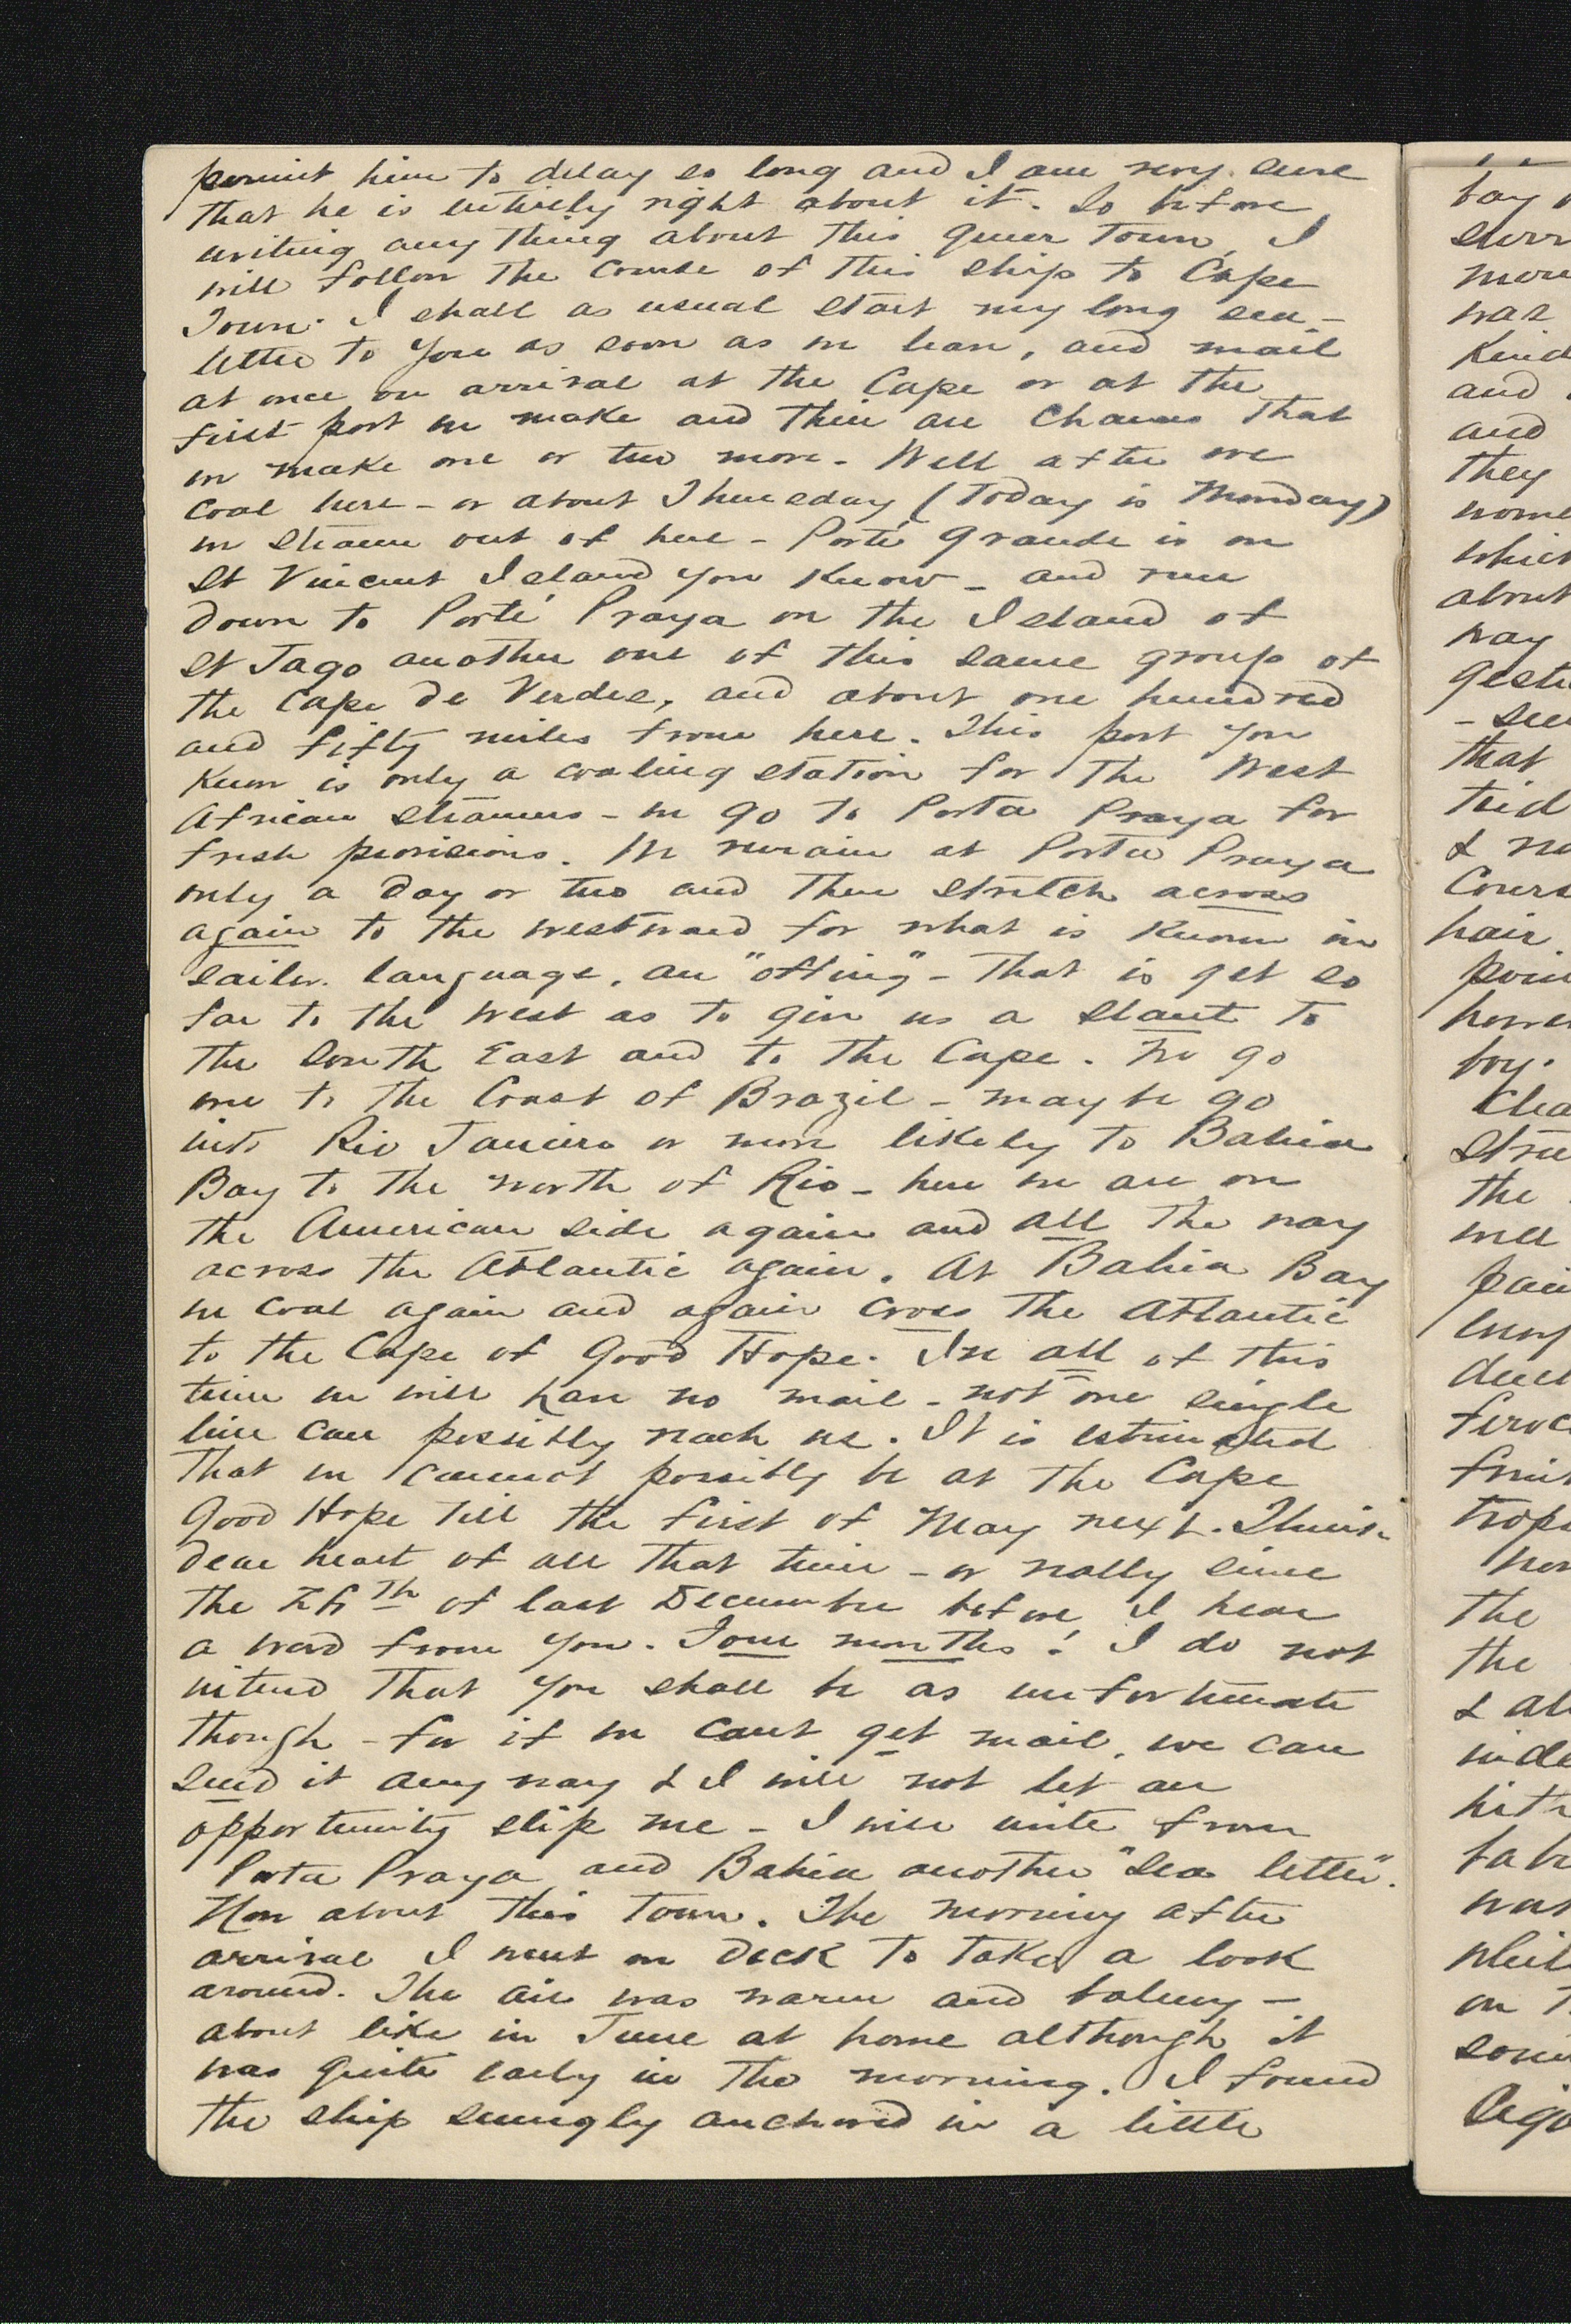 permit him to delay so long and I am very sure
that he is entirely right about it. So before
writing any thing about this queer Town, I
will follow the course of this ship to Cape
Town. I shall as usual start my long sea-
letter to you as soon as we leave, and mail
at once on arrival at the Cape or at the
first port we make and there are chances that
we make one or two more. Well after we
coal here - or about Thursday (Today is Monday)
we steam out of here - Porté Grande is on
St Vincent Island you know - and run
down to Porté Praya on the Island of
St Jago another one of this same group of
the Cape de Verdes, and about one hundred
and fifty miles from here. This port you
know is only a coaling station for the West
African steamers - we go to Porta Praya for
fresh provisions. We remain at Porta Praya
only a day or two and then stretch across
again to the westward for what is known in
sailor language, an "offing" - that is get so
far to the west as to give us a slant to
the South East and to the Cape. We go
over to the Coast of Brazil - maybe go
into Rio Janeiro or more likely to Bahia
Bay to the north of Rio - here we are on
the American side again and all the way
across the Atlantic again. At Bahia Bay
we coal again and again cross the Atlantic
to the Cape of Good Hope. In all of this
time we will have no mail - not one single
line can possibly reach us. It is estimated
that we cannot possibly be at the Cape
Good Hope till the first of May next. Think
dear heart of all that time - or really since
the 26th of last December before I hear
a word from you. Four months! I do not
intend that you shall be as unfortunate
though - for if we cant get mail, we can
send it any way & I will not let an
opportunity slip me - I will write from
Porta Praya and Bahia another "Sea letter".
Now about this town. The morning after
arrival I went on deck to take a look
around. The air was warm and balmy -
about like in June at home although it
was quite early in the morning. I found
the ship snugly anchored in a little
bay
they
about
way
that
hair
boy.
the
the
the